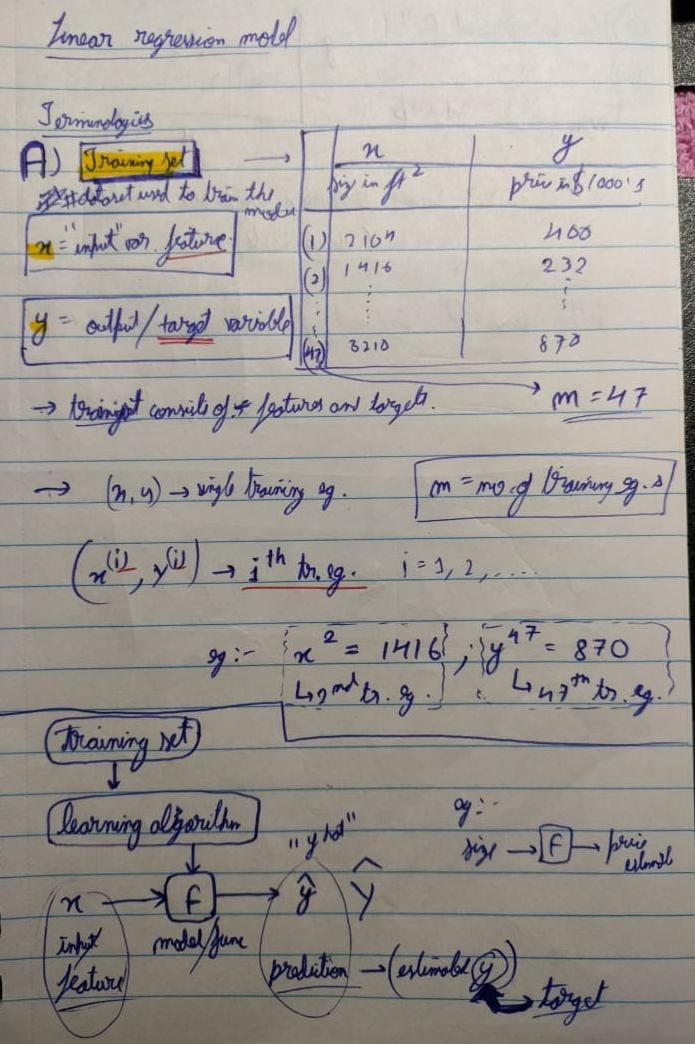 Linear regression model
Terminologies
A) Training set →
# dataset used to train the model
x = "input" var feature
y = output / target variable
x y
size in ft² price in $1000's
(1) 2104 400
(2) 1416 232
(47) 3210 870
m = 47
→ trainset consists of features and targets.
→ (x, y) → single training eg.
m = no. of training eg. s
(x^(i), y^(i)) → i^th tr. eg. i = 1, 2, ....
eg :- x² = 1416 ; y^47 = 870
↳ 2nd tr. eg. ↳ 47th tr. eg.
training set
↓
learning algorithm
↓
"y hat"
eg :-
size → F → price estimate
x → F → ŷ Ŷ
input model/func
feature prediction → (estimated y)
target